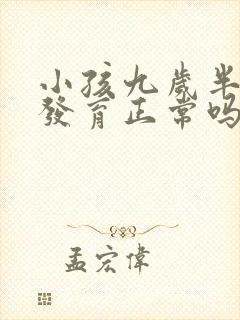 小孩九歲半
發育正常嗎
孟宏偉